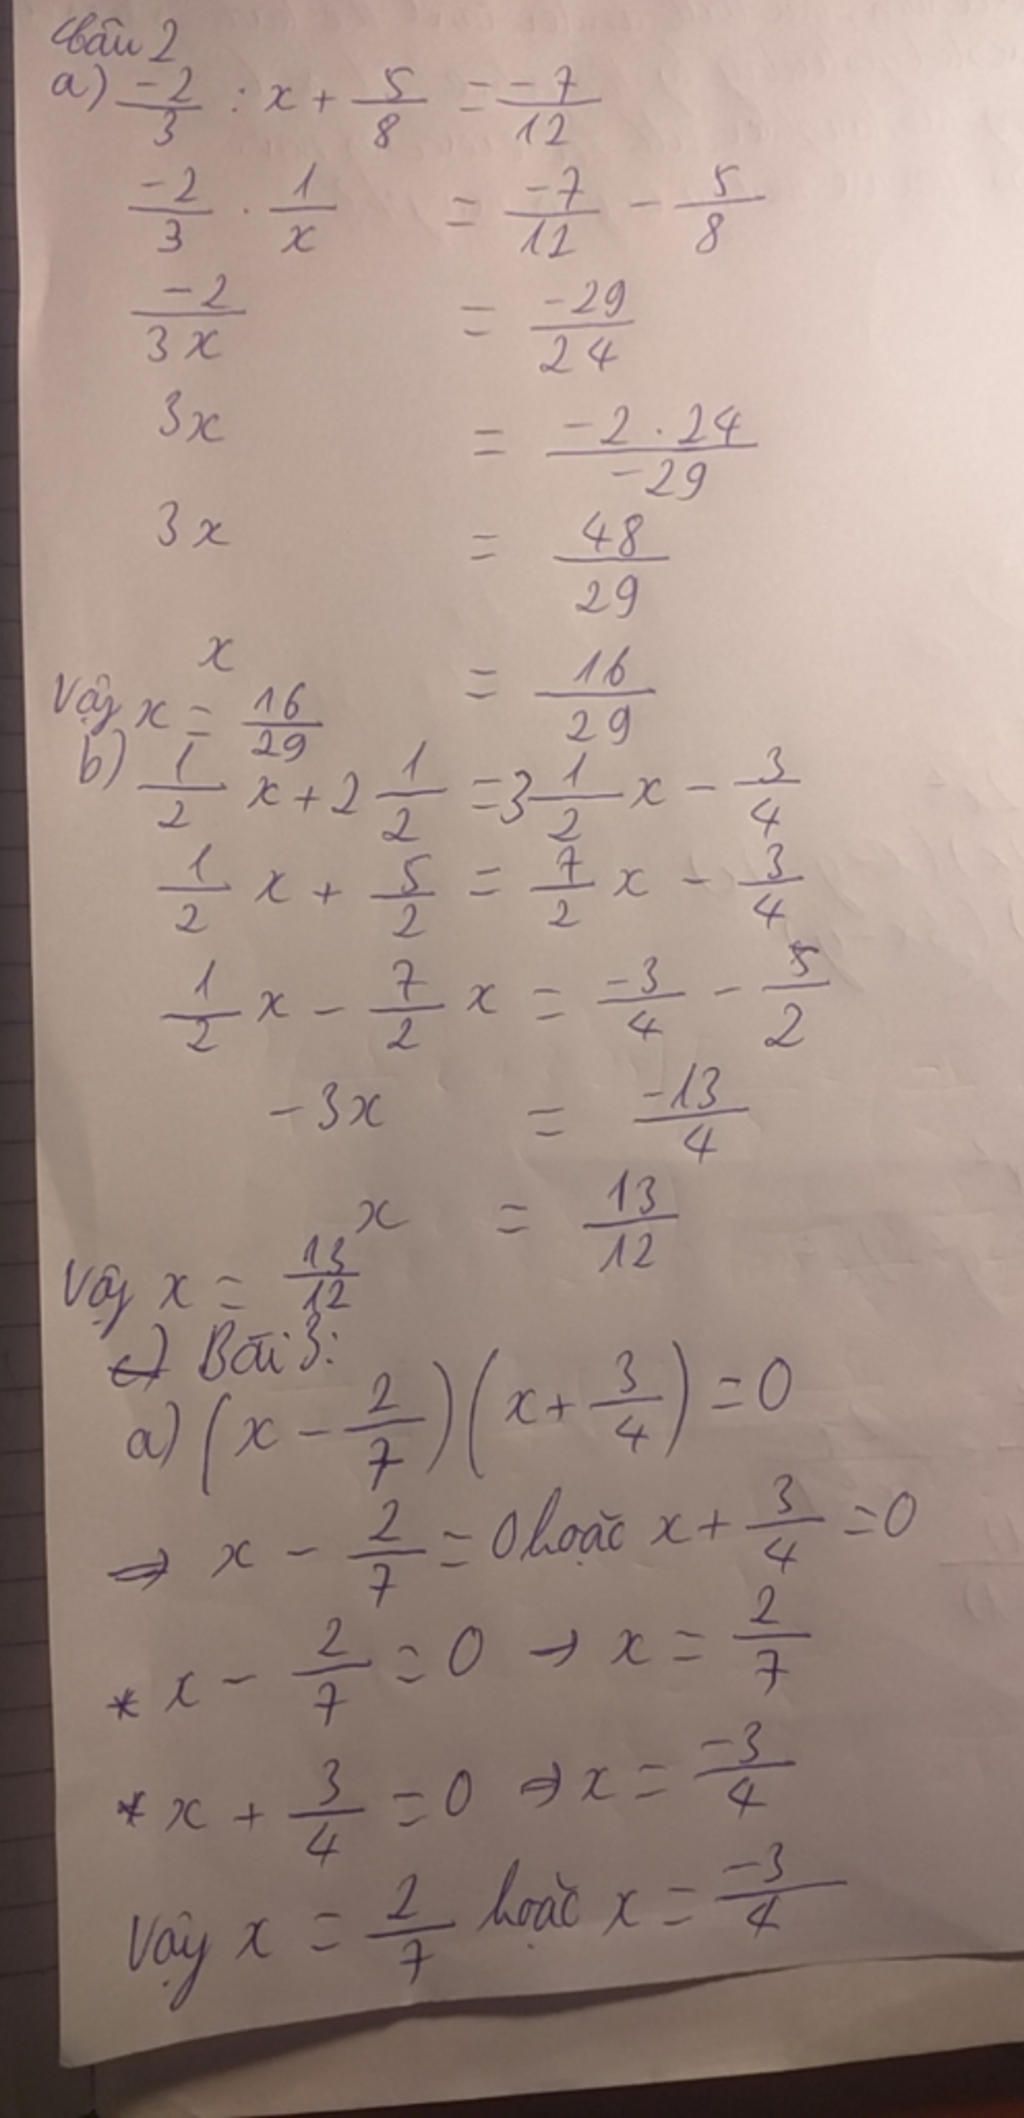 Câu 2
a) -2/3 : x + 5/8 = -7/12
-2/3 . 1/x = -7/12 - 5/8
-2/3x = -29/24
3x = -2.24/-29
3x = 48/29
x = 16/29
Vậy x = 16/29
b) 1/2 x + 2 1/2 = 3 1/2 x - 3/4
1/2 x + 5/2 = 7/2 x - 3/4
1/2 x - 7/2 x = -3/4 - 5/2
-3x = -13/4
x = 13/12
Vậy x = 13/12
c) Bài 3:
a) (x - 2/7)(x + 3/4) = 0
⇒ x - 2/7 = 0 hoặc x + 3/4 = 0
* x - 2/7 = 0 → x = 2/7
* x + 3/4 = 0 ⇒ x = -3/4
Vậy x = 2/7 hoặc x = -3/4